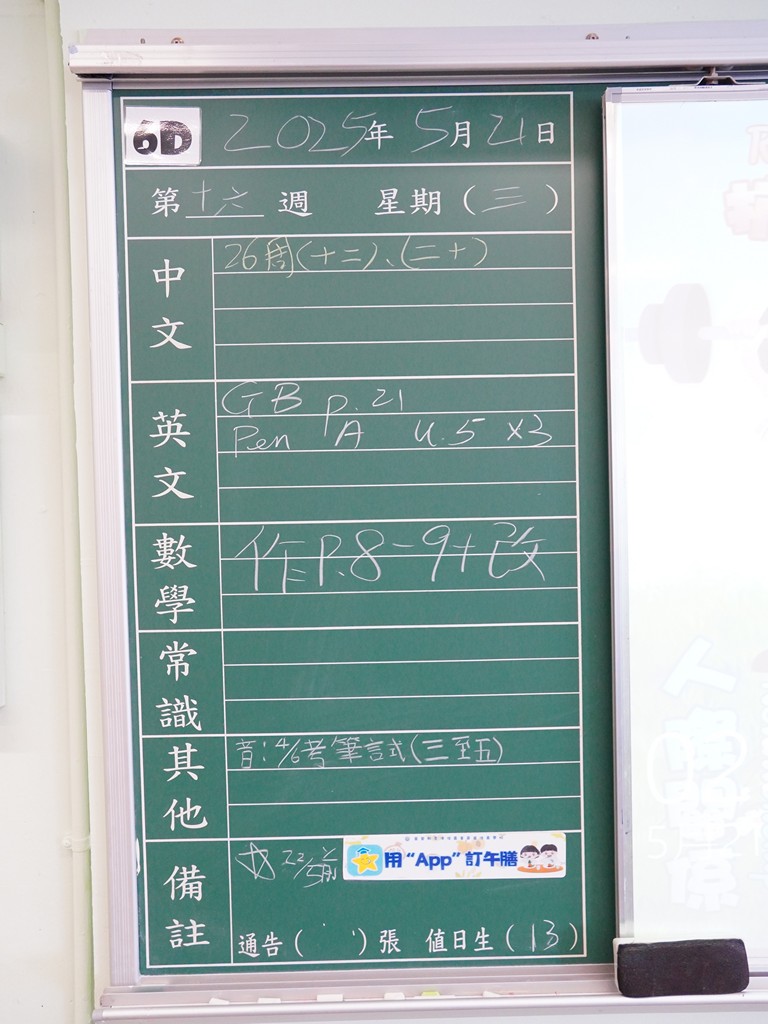 6D 2025年 5月 21日
第十六週 星期(三)
中文
26周(十二)、(二十)
英文
GB p.21
Pen A u.5 x3
數學
作P.8-9+改
常識
其他
音:4/6考筆試(三至五)
備註
22/5前 用“App”訂午膳
通告( )張 值日生(13)
人際關係